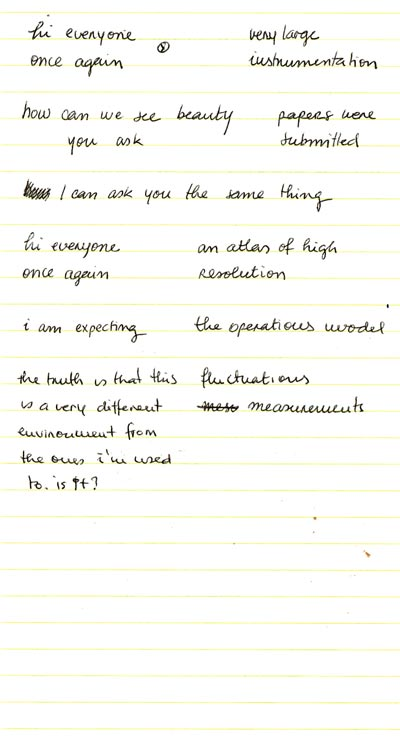 hi everyone
once again
②
very large
instrumentation
how can we see beauty
you ask
papers were
submitted
I can ask you the same thing
hi everyone
once again
an atlas of high
resolution
i am expecting
the operations model
the truth is that this
is a very different
environment from
the ones i'm used
to. is it?
fluctuations
measurements